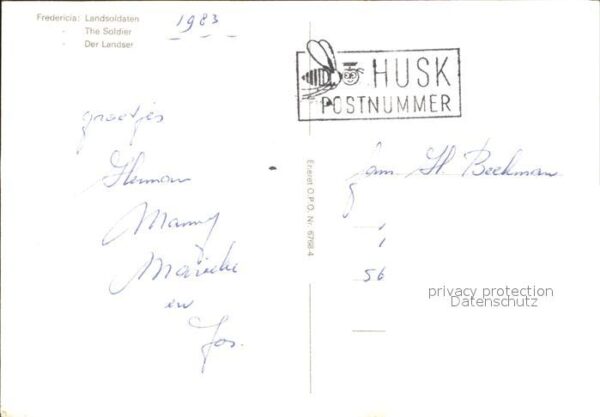 Fredericia: Landsoldaten
- The Soldier
- Der Landser
1983
HUSK
POSTNUMMER
groetjes
Herman
Manny
Marieke
en
Jos.
Eneret O.P.O. Nr. 6768-4
fam H. Beekman
56
privacy protection
Datenschutz